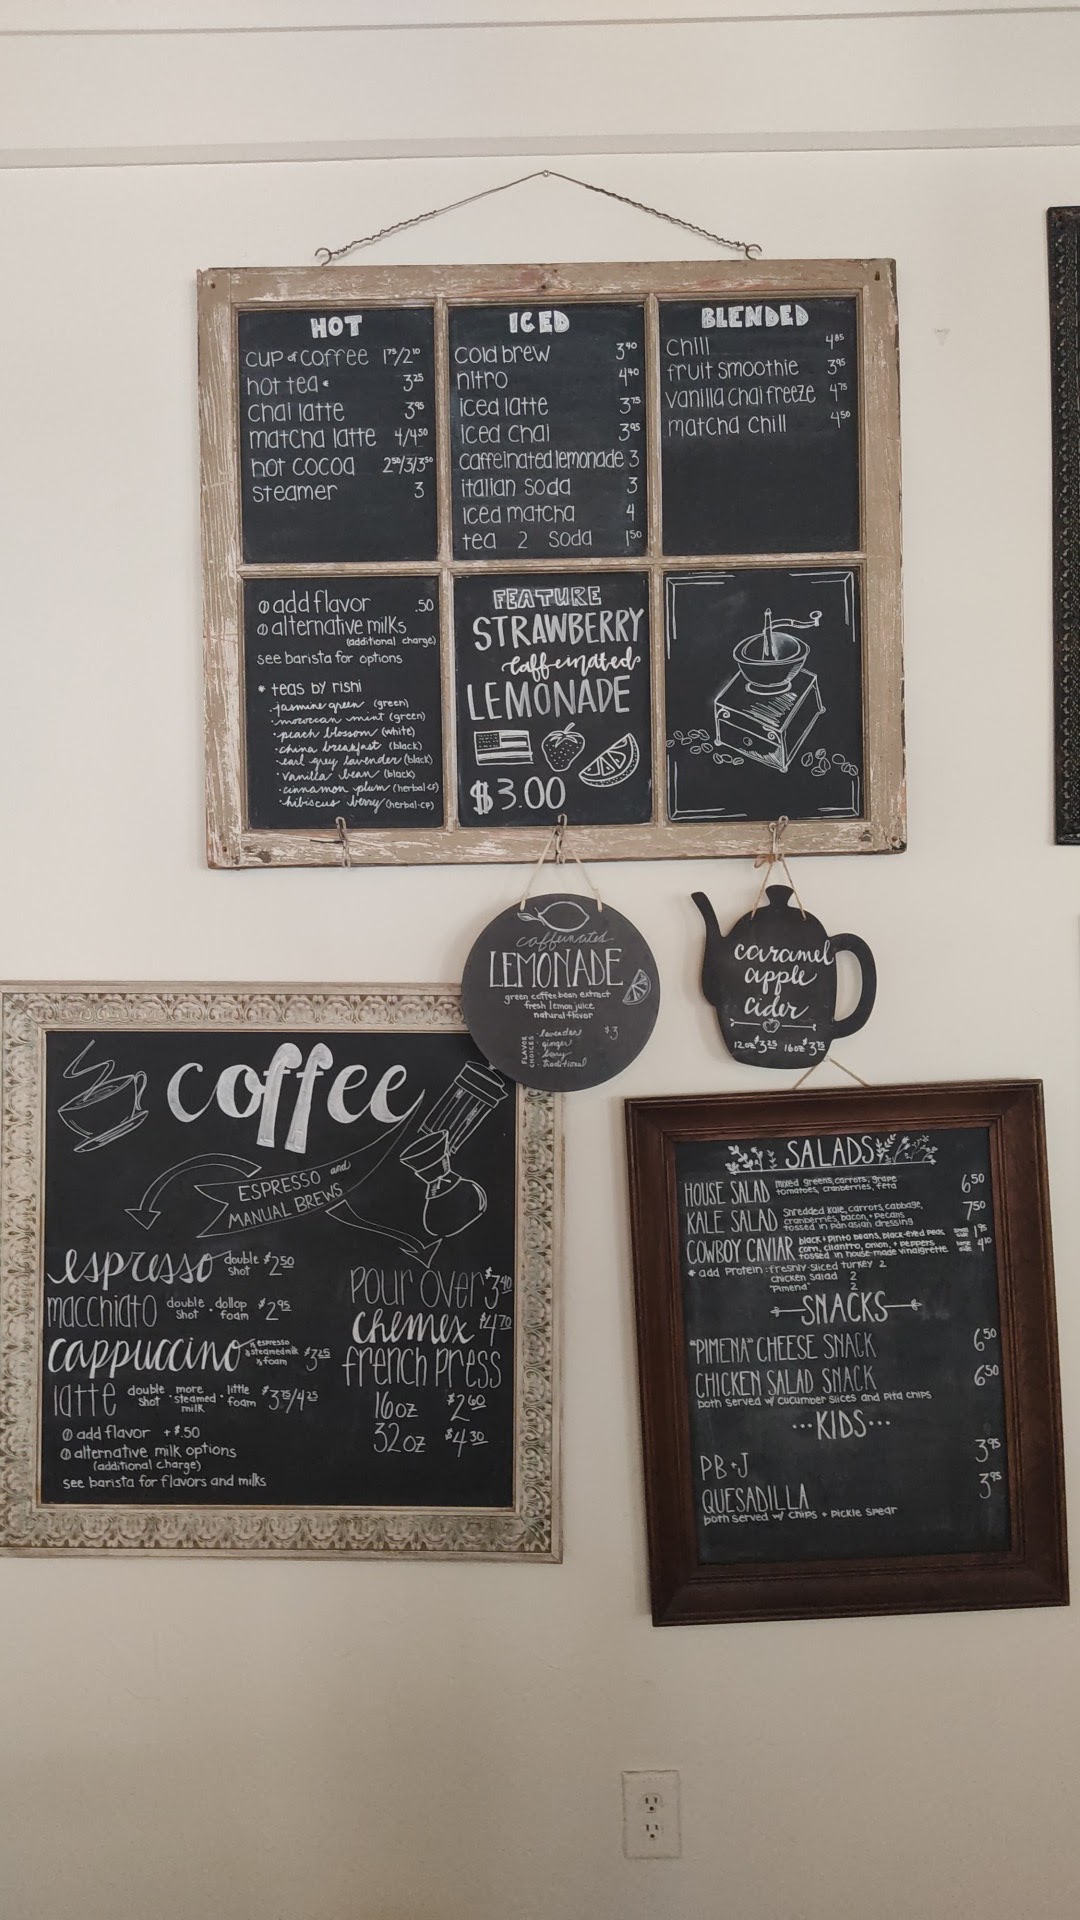 HOT
cup of coffee 1⁷⁵/2¹⁰
hot tea * 3²⁵
chai latte 3⁹⁵
matcha latte 4/4⁵⁰
hot cocoa 2⁵⁰/3/3⁵⁰
steamer 3
ICED
cold brew 3⁴⁰
nitro 4⁴⁰
iced latte 3⁷⁵
iced chai 3⁹⁵
caffeinated lemonade 3
italian soda 3
iced matcha 4
tea 2 soda 1⁵⁰
BLENDED
chill 4⁸⁵
fruit smoothie 3⁹⁵
vanilla chai freeze 4⁷⁵
matcha chill 4⁵⁰
add flavor .50
alternative milks
(additional charge)
see barista for options
* teas by rishi
· jasmine green (green)
· moroccan mint (green)
· peach blossom (white)
· china breakfast (black)
· earl grey lavender (black)
· vanilla bean (black)
· cinnamon plum (herbal-CF)
· hibiscus berry (herbal-CF)
FEATURE
STRAWBERRY
caffeinated
LEMONADE
$3.00
caffeinated
LEMONADE
green coffee bean extract
fresh lemon juice
natural flavor
FLAVOR CHOICES
· lavender $3
· ginger
· berry
· traditional
caramel
apple
cider
12oz $3.25 16oz $3.75
coffee
ESPRESSO and
MANUAL BREWS
espresso double shot $2.50
macchiato double shot · dollop foam $2.95
cappuccino espresso steamed milk & foam $3.25
latte double shot · more steamed milk · little foam $3.75/4.25
add flavor +$.50
alternative milk options
(additional charge)
see barista for flavors and milks
pour over $3.40
chemex $4.70
french press
16oz $2.60
32oz $4.30
SALADS
HOUSE SALAD mixed greens, carrots, grape tomatoes, cranberries, feta 6⁵⁰
KALE SALAD shredded kale, carrots, cabbage, cranberries, bacon, + pecans tossed in pan asian dressing 7⁵⁰
COWBOY CAVIAR black + pinto beans, black-eyed peas, corn, cilantro, onion, + peppers tossed in house-made vinaigrette 1⁹⁵ 4¹⁰
* add protein: freshly-sliced turkey 2
chicken salad 2
"Pimena" 2
SNACKS
"PIMENA" CHEESE SNACK 6⁵⁰
CHICKEN SALAD SNACK 6⁵⁰
both served w/ cucumber slices and pita chips
...KIDS...
PB+J 3⁹⁵
QUESADILLA 3⁹⁵
both served w/ chips + pickle spear